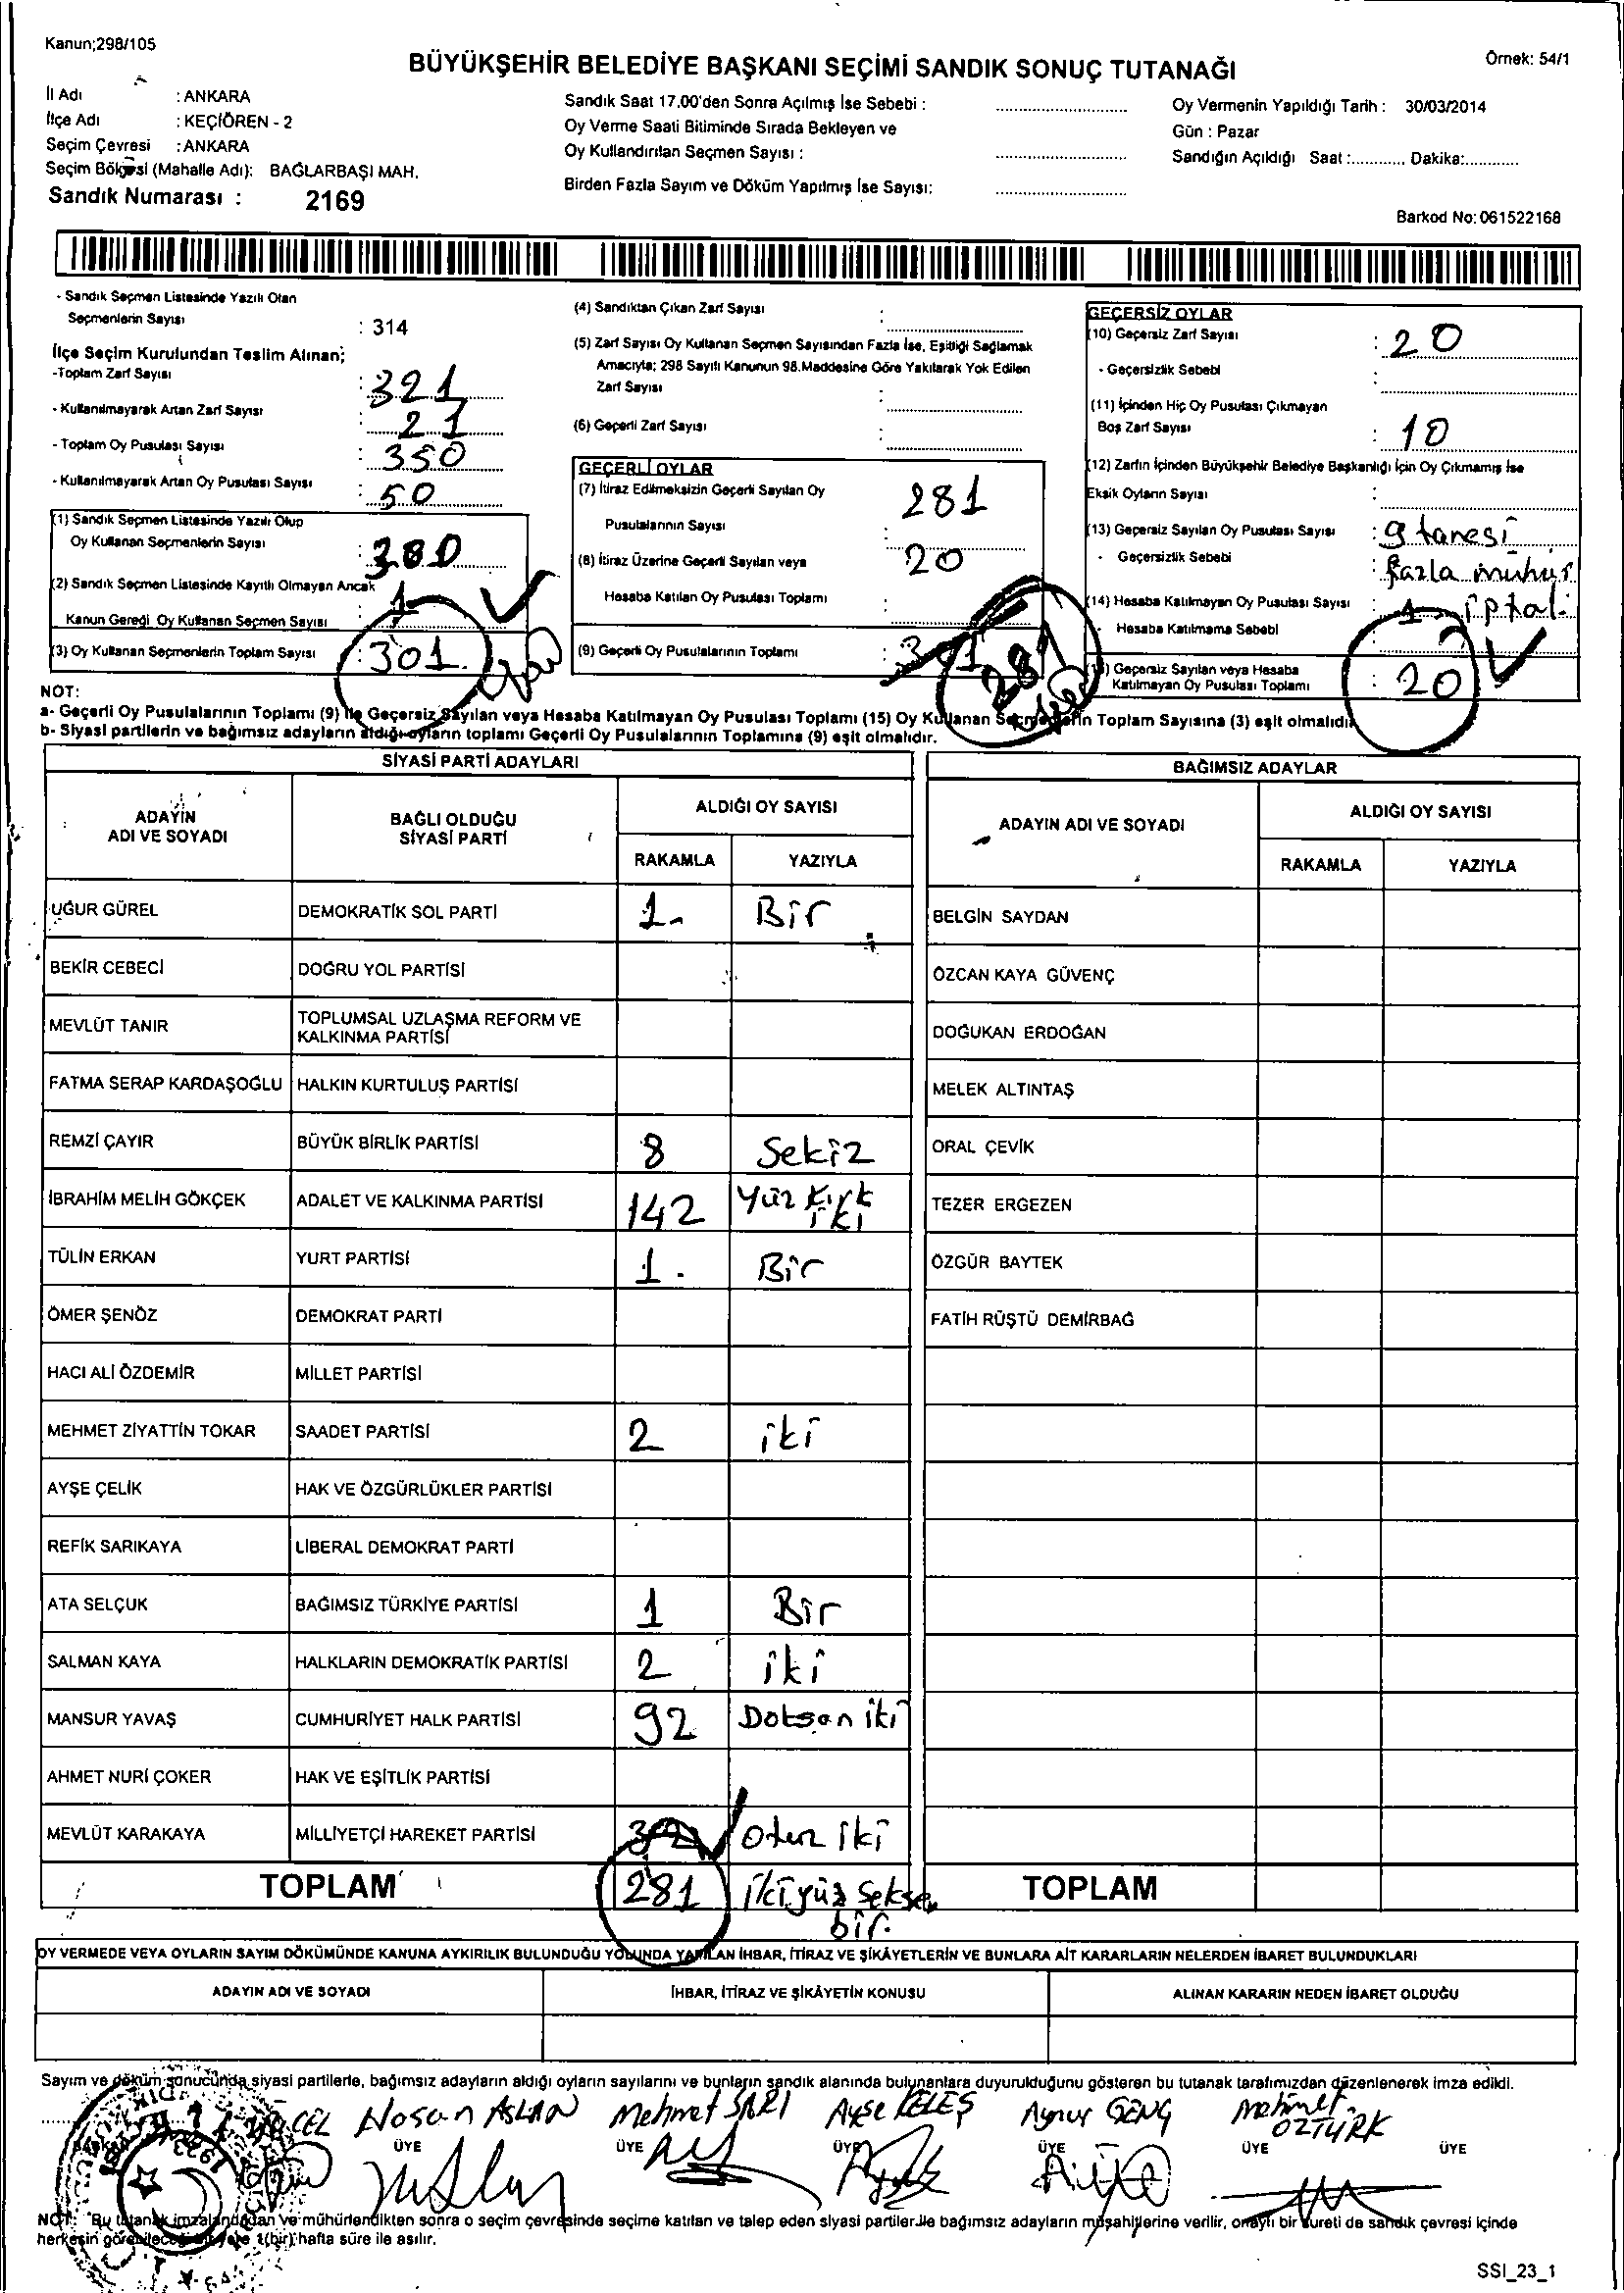 Kanun;298/105
BÜYÜKŞEHİR BELEDİYE BAŞKANI SEÇİMİ SANDIK SONUÇ TUTANAĞI
Örnek: 54/1
İl Adı : ANKARA
İlçe Adı : KEÇİÖREN - 2
Seçim Çevresi : ANKARA
Seçim Bölgesi (Mahalle Adı): BAĞLARBAŞI MAH.
Sandık Numarası : 2169
Sandık Saat 17.00'den Sonra Açılmış İse Sebebi : ..............................
Oy Verme Saati Bitiminde Sırada Bekleyen ve
Oy Kullandırılan Seçmen Sayısı : ..............................
Birden Fazla Sayım ve Döküm Yapılmış İse Sayısı: ..............................
Oy Vermenin Yapıldığı Tarih : 30/03/2014
Gün : Pazar
Sandığın Açıldığı Saat :............ Dakika:............
Barkod No: 061522168
- Sandık Seçmen Listesinde Yazılı Olan
Seçmenlerin Sayısı : 314
İlçe Seçim Kurulundan Teslim Alınan;
-Toplam Zarf Sayısı : 321
- Kullanılmayarak Artan Zarf Sayısı : 21
- Toplam Oy Pusulası Sayısı : 350
- Kullanılmayarak Artan Oy Pusulası Sayısı : 50
(1) Sandık Seçmen Listesinde Yazılı Olup
Oy Kullanan Seçmenlerin Sayısı : 300
(2) Sandık Seçmen Listesinde Kayıtlı Olmayan Ancak
Kanun Gereği Oy Kullanan Seçmen Sayısı : 1
(3) Oy Kullanan Seçmenlerin Toplam Sayısı : 301
(4) Sandıktan Çıkan Zarf Sayısı :
(5) Zarf Sayısı Oy Kullanan Seçmen Sayısından Fazla İse, Eşitliği Sağlamak
Amacıyla; 298 Sayılı Kanunun 98.Maddesine Göre Yakılarak Yok Edilen
Zarf Sayısı :
(6) Geçerli Zarf Sayısı :
GEÇERLİ OYLAR
(7) İtiraz Edilmeksizin Geçerli Sayılan Oy
Pusulalarının Sayısı : 281
(8) İtiraz Üzerine Geçerli Sayılan veya
Hesaba Katılan Oy Pusulası Toplamı : 20
(9) Geçerli Oy Pusulalarının Toplamı : 281
GEÇERSİZ OYLAR
(10) Geçersiz Zarf Sayısı : 20
- Geçersizlik Sebebi :
(11) İçinden Hiç Oy Pusulası Çıkmayan
Boş Zarf Sayısı : 10
(12) Zarfın İçinden Büyükşehir Belediye Başkanlığı İçin Oy Çıkmamış İse
Eksik Oyların Sayısı :
(13) Geçersiz Sayılan Oy Pusulası Sayısı : 9 tanesi
- Geçersizlik Sebebi : fazla mühür
(14) Hesaba Katılmayan Oy Pusulası Sayısı : 1 iptal
- Hesaba Katılmama Sebebi
(15) Geçersiz Sayılan veya Hesaba
Katılmayan Oy Pusulası Toplamı : 20
NOT:
a- Geçerli Oy Pusulalarının Toplamı (9) ile Geçersiz Sayılan veya Hesaba Katılmayan Oy Pusulası Toplamı (15) Oy Kullanan Seçmenlerin Toplam Sayısına (3) eşit olmalıdır.
b- Siyasi partilerin ve bağımsız adayların aldığı oyların toplamı Geçerli Oy Pusulalarının Toplamına (9) eşit olmalıdır.
SİYASİ PARTİ ADAYLARI
BAĞIMSIZ ADAYLAR
ADAYIN ADI VE SOYADI | BAĞLI OLDUĞU SİYASİ PARTİ | ALDIĞI OY SAYISI | ADAYIN ADI VE SOYADI | ALDIĞI OY SAYISI
RAKAMLA | YAZIYLA | RAKAMLA | YAZIYLA
UĞUR GÜREL DEMOKRATİK SOL PARTİ 1- Bir BELGİN SAYDAN
BEKİR CEBECİ DOĞRU YOL PARTİSİ ÖZCAN KAYA GÜVENÇ
MEVLÜT TANIR TOPLUMSAL UZLAŞMA REFORM VE KALKINMA PARTİSİ DOĞUKAN ERDOĞAN
FATMA SERAP KARDAŞOĞLU HALKIN KURTULUŞ PARTİSİ MELEK ALTINTAŞ
REMZİ ÇAYIR BÜYÜK BİRLİK PARTİSİ 8 Sekiz ORAL ÇEVİK
İBRAHİM MELİH GÖKÇEK ADALET VE KALKINMA PARTİSİ 142 Yüz kırk iki TEZER ERGEZEN
TÜLİN ERKAN YURT PARTİSİ 1. Bir ÖZGÜR BAYTEK
ÖMER ŞENÖZ DEMOKRAT PARTİ FATİH RÜŞTÜ DEMİRBAĞ
HACI ALİ ÖZDEMİR MİLLET PARTİSİ
MEHMET ZİYATTİN TOKAR SAADET PARTİSİ 2 iki
AYŞE ÇELİK HAK VE ÖZGÜRLÜKLER PARTİSİ
REFİK SARIKAYA LİBERAL DEMOKRAT PARTİ
ATA SELÇUK BAĞIMSIZ TÜRKİYE PARTİSİ 1 Bir
SALMAN KAYA HALKLARIN DEMOKRATİK PARTİSİ 2 iki
MANSUR YAVAŞ CUMHURİYET HALK PARTİSİ 92 Doksan iki
AHMET NURİ ÇOKER HAK VE EŞİTLİK PARTİSİ
MEVLÜT KARAKAYA MİLLİYETÇİ HAREKET PARTİSİ 32 Otuz iki
TOPLAM 281 ikiyüz seksen bir. TOPLAM
OY VERMEDE VEYA OYLARIN SAYIM DÖKÜMÜNDE KANUNA AYKIRILIK BULUNDUĞU YOLUNDA YAPILAN İHBAR, İTİRAZ VE ŞİKÂYETLERİN VE BUNLARA AİT KARARLARIN NELERDEN İBARET BULUNDUKLARI
ADAYIN ADI VE SOYADI | İHBAR, İTİRAZ VE ŞİKÂYETİN KONUSU | ALINAN KARARIN NEDEN İBARET OLDUĞU
Sayım ve döküm sonucunda siyasi partilerle, bağımsız adayların aldığı oyların sayılarını ve bunların sandık alanında bulunanlara duyurulduğunu gösteren bu tutanak tarafımızdan düzenlenerek imza edildi.
Hasan ASLAN Mehmet SARI Ayşe KELEŞ Aynur GENÇ Mehmet ÖZTÜRK
BAŞKAN ÜYE ÜYE ÜYE ÜYE ÜYE ÜYE
NOT: Bu tutanak imzalandıktan ve mühürlendikten sonra o seçim çevresinde seçime katılan ve talep eden siyasi partiler ile bağımsız adayların müşahitlerine verilir, onaylı bir sureti de sandık çevresi içinde
herkesin görebileceği bir yere 1(bir) hafta süre ile asılır.
SSI_23_1